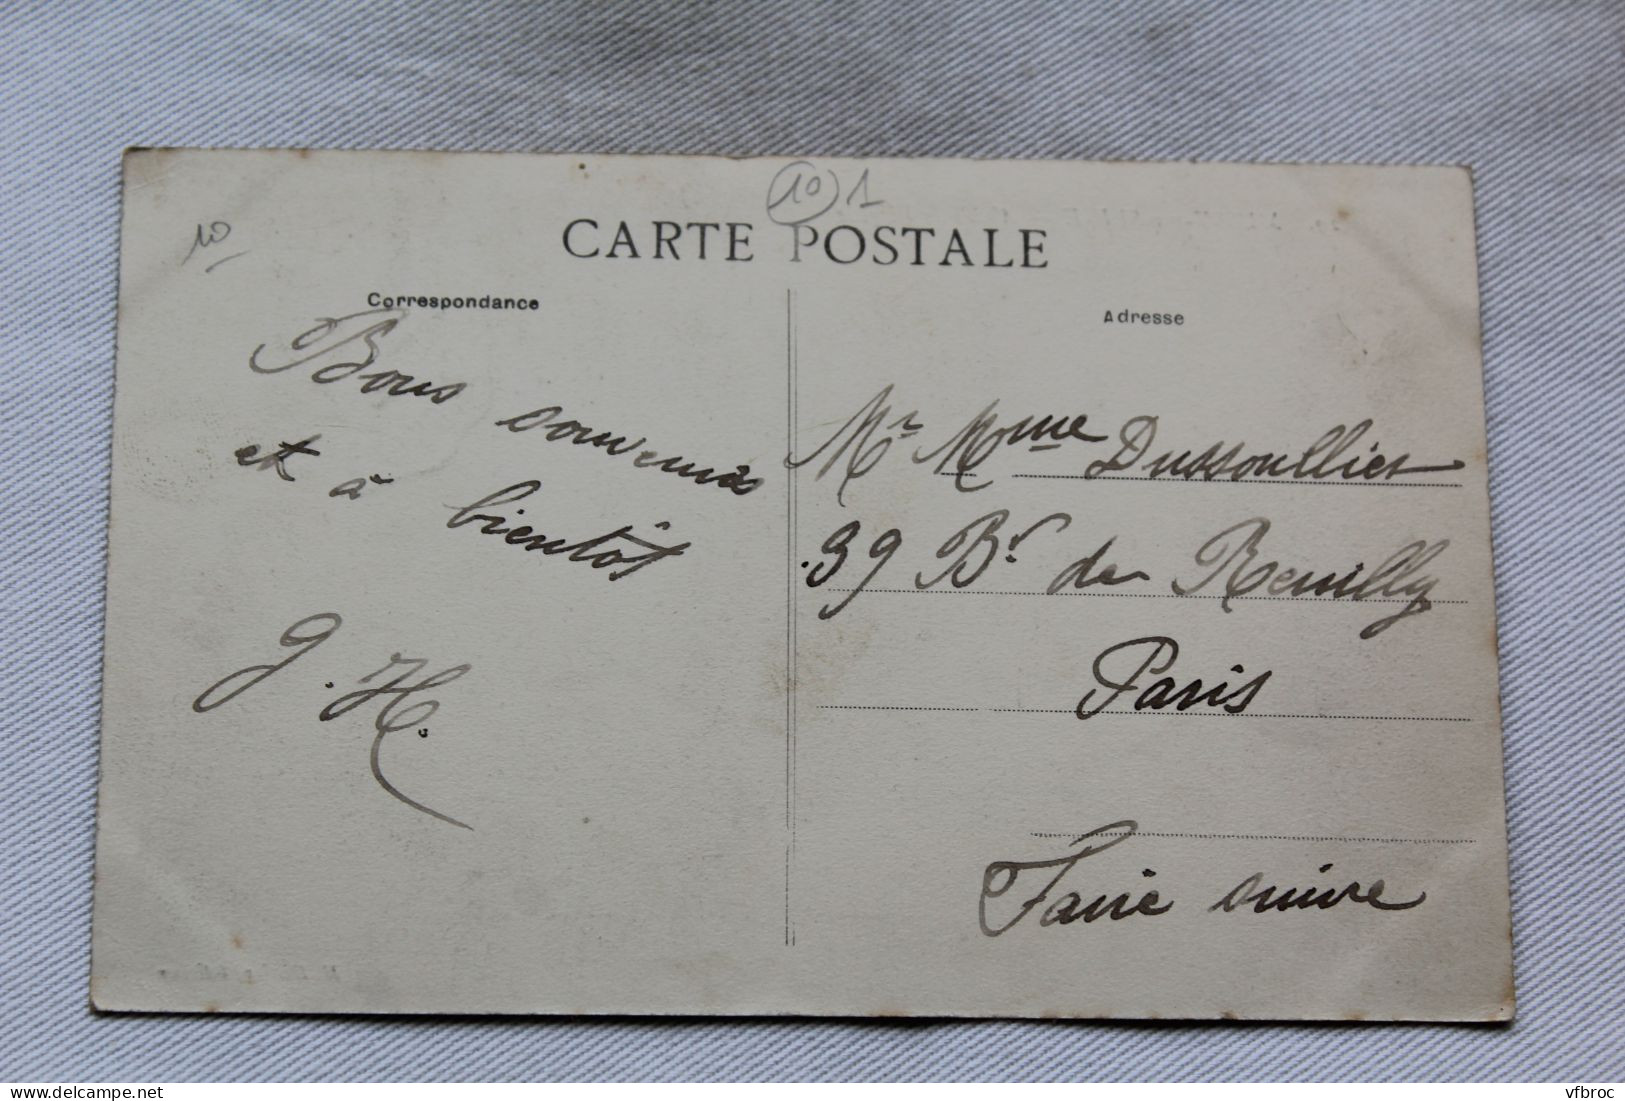 10
(10) 1
CARTE POSTALE
Correspondance
Bons souvenirs
et à bientôt
g. H.
Adresse
Mr Mme Dussoullier
39 Bd de Reuilly
Paris
Faire suivre
vfbroc